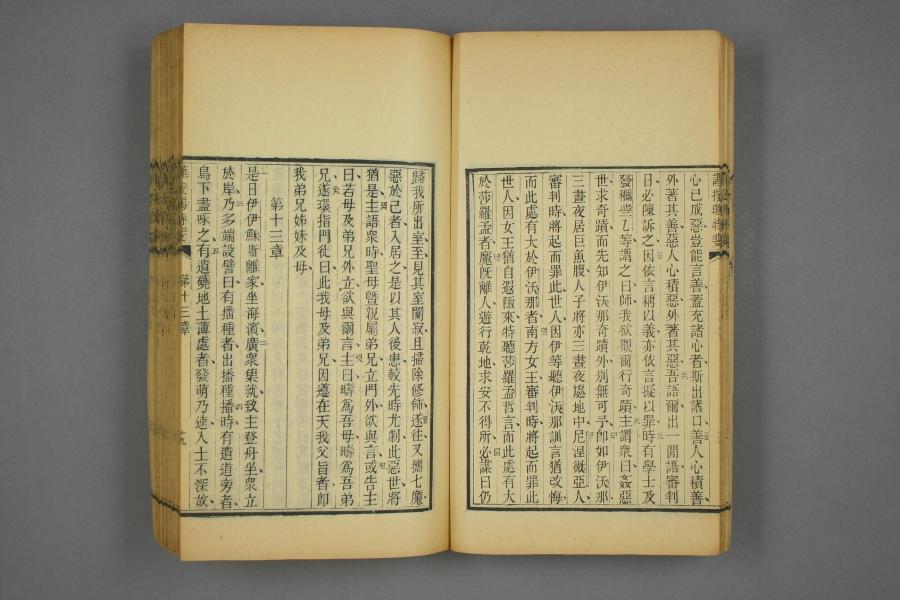 心已成惡豈能言善蓋充諸心者斯出諸口善人心積善
外著其善惡人心積惡外著其惡吾語爾出一閒語審判
日必陳訴之因依言稱以義亦依言擬以罪時有學士及
發穪些乙等謂之曰師我欲觀爾行奇蹟主謂衆曰姦惡
世求奇蹟而先知伊沃那奇蹟外別無可予卽如伊沃那
三晝夜居巨魚腹人子將亦三晝夜處地中尼湼微亞人
審判時將起而罪此世人因伊等聽伊沃那訓言猶改悔
而此處有大於伊沃那者南方女王審判時將起而罪此
世人因女王猶自遐陬來特聽莎羅孟哲言而此處有大
於莎羅孟者魔旣離人遊行乾地求安不得所必謀曰仍
歸我所出室至見其室閴寂且掃除修飾遂往又攜七魔
惡於己者入居之是以其人後患較先時尤劇此惡世將
猶是主語衆時聖母曁親屬弟兄立門外欲與言或告主
曰若母及弟兄外立欲與爾言主曰疇爲吾母疇爲吾弟
兄遂環指門徒曰此我母及弟兄因遵在天我父旨者卽
我弟兄姊妹及母
第十三章
是日伊伊穌斯離家坐海濱廣衆集就致主登舟坐衆立
於岸乃多端設譬曰有播種者出播種播時有遺道旁者
鳥下盡啄之有遺磽地土薄處者發萌乃速入土不深故
第十三章